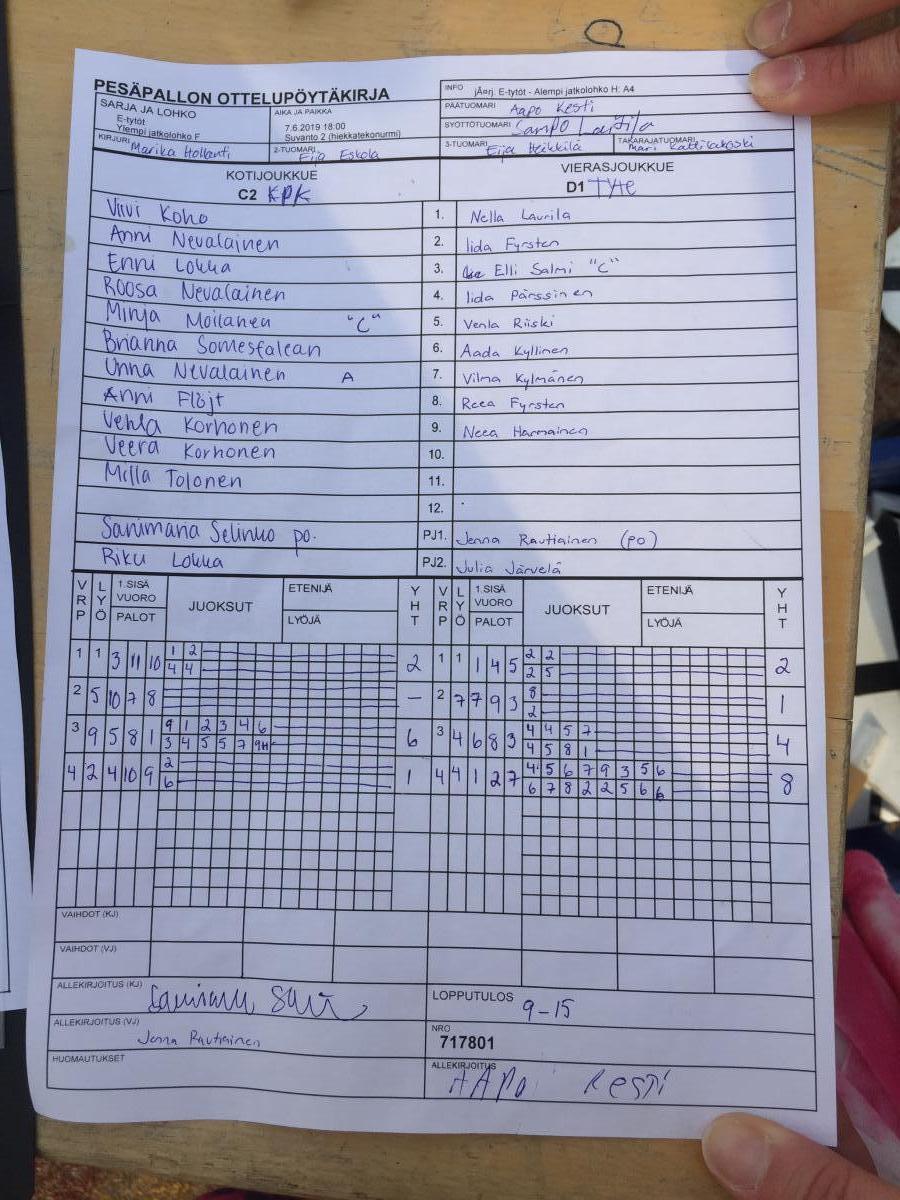 PESÄPALLON OTTELUPÖYTÄKIRJA
INFO jÄ¤rj. E-tytöt - Alempi jatkolohko H: A4
SARJA JA LOHKO
E-tytöt
Ylempi jatkolohko F
AIKA JA PAIKKA
7.6.2019 18:00
Suvanto 2 (hiekkatekonurmi)
PÄÄTUOMARI Aapo Kesti
SYÖTTÖTUOMARI Sampo
KIRJURI Marika Hollanti
2-TUOMARI Eija Eskola
3-TUOMARI Eija Heikkilä
TAKARAJATUOMARI Mari Kattilakoski
KOTIJOUKKUE
C2 KPK
VIERASJOUKKUE
D1 TyTe
Viivi Koho 1. Nella Laurila
Anni Nevalainen 2. Iida Fyrsten
Enni Lokka 3. Elli Salmi "C"
Roosa Nevalainen 4. Iida Pärssinen
Minja Moilanen "C" 5. Venla Riiski
Brianna Somesfalean 6. Aada Kyllinen
Unna Nevalainen A 7. Vilma Kylmänen
Anni Flöjt 8. Reea Fyrsten
Venla Korhonen 9. Neea Harmainen
Veera Korhonen 10.
Milla Tolonen 11.
12.
Sanimaria Selinko po. PJ1. Jenna Rautiainen (po)
Riku Lokka PJ2. Julia Järvelä
VRP LYÖ 1.SISÄ VUORO PALOT JUOKSUT ETENIJÄ LYÖJÄ YHT VRP LYÖ 1.SISÄ VUORO PALOT JUOKSUT ETENIJÄ LYÖJÄ YHT
1 1 3 11 10 1 2 2 1 1 1 4 5 2 2 2
4 4 2 5
2 5 10 7 8 – 2 7 7 9 3 8 1
2
3 9 5 8 1 9 1 2 3 4 6 6 3 4 6 8 3 4 4 5 7 4
3 4 5 5 7 9H 4 5 8 1
4 2 4 10 9 2 1 4 4 1 2 7 4 5 6 7 9 3 5 6 8
6 6 7 8 2 2 5 6 6
VAIHDOT (KJ)
VAIHDOT (VJ)
ALLEKIRJOITUS (KJ)
LOPPUTULOS 9-15
ALLEKIRJOITUS (VJ) Jenna Rautiainen
NRO
717801
HUOMAUTUKSET
ALLEKIRJOITUS AAPO KESTI